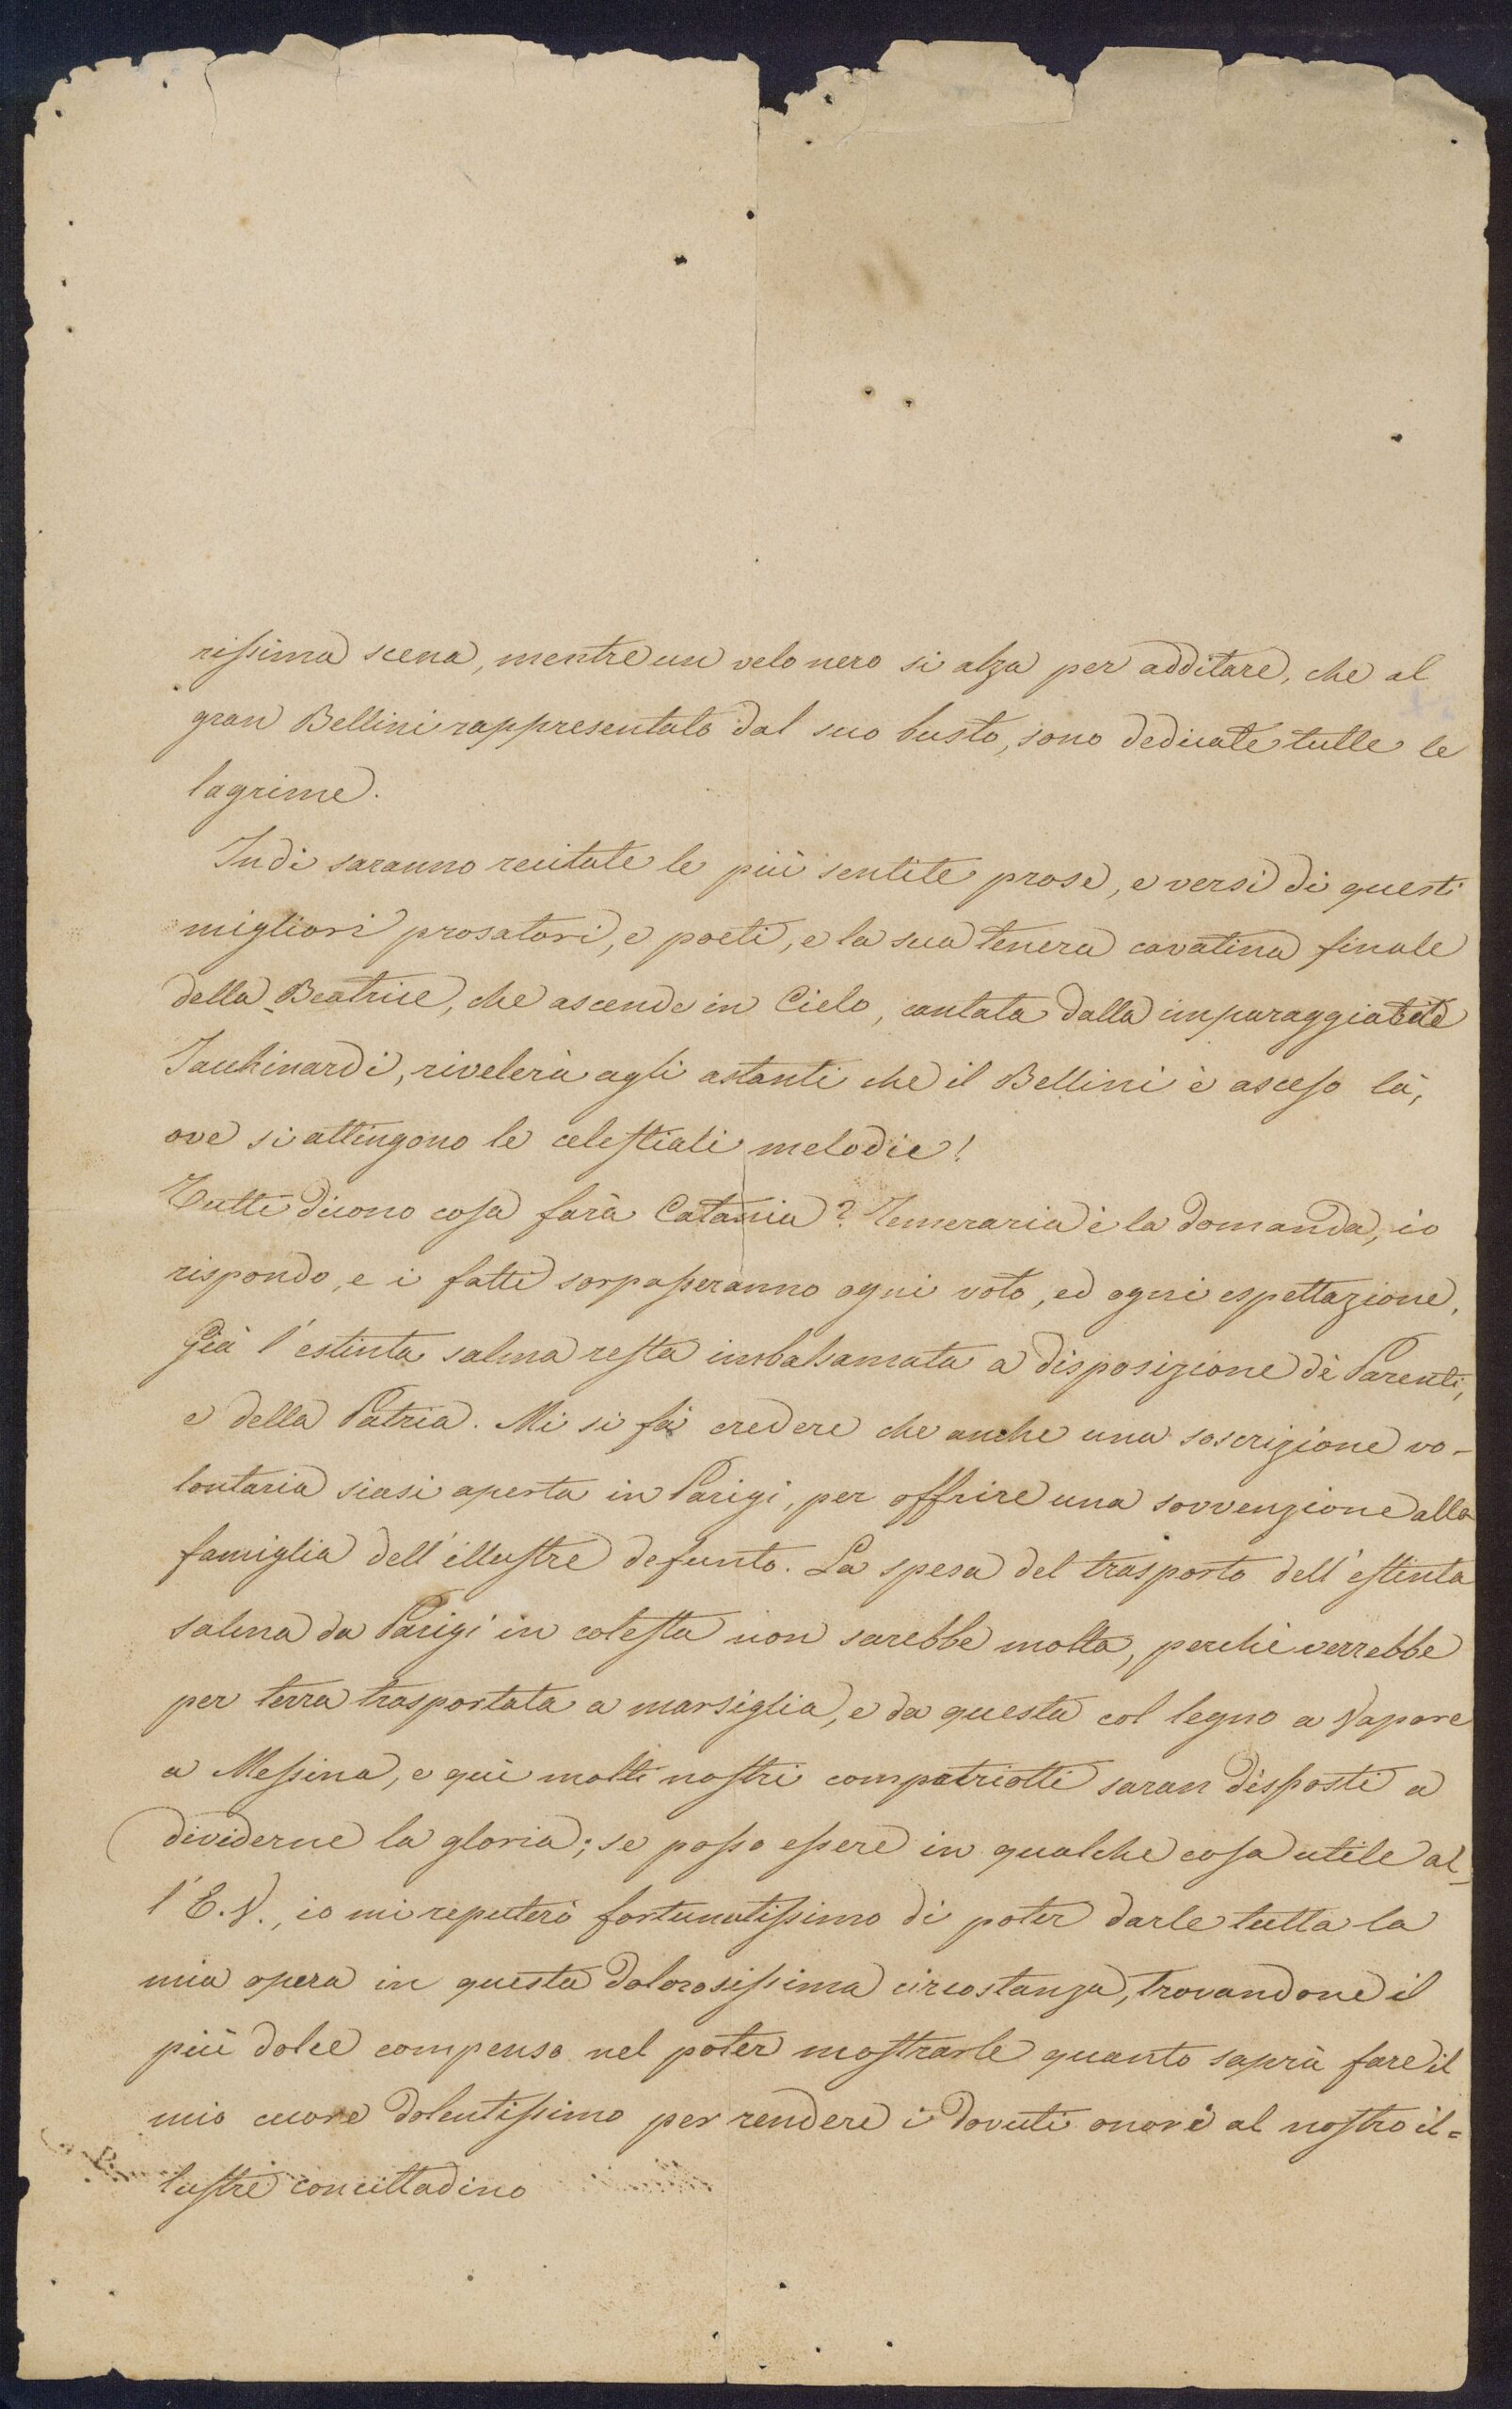 rissima scena, mentre un velo nero si alza per additare, che al
gran Bellini rappresentato dal suo busto, sono dedicate tutte le
lagrime.
Indi saranno recitate le più sentite prose, e versi di questi
migliori prosatori, e poeti, e la sua tenera cavatina finale
della Beatrice, che ascende in Cielo, cantata dalla imparaggiabile
Tacchinardi, rivelerà agli astanti che il Bellini è asceso là,
ove si attingono le celestiali melodie!
Tutti dicono cosa farà Catania? Temeraria è la domanda, io
rispondo, e i fatti sorpasseranno ogni voto, ed ogni espettazione.
Già l'estinta salma resta imbalsamata a disposizione dè Parenti,
e della Patria. Mi si fà credere che anche una soscrizione vo-
lontaria siasi aperta in Parigi, per offrire una sovvenzione alla
famiglia dell'illustre defunto. La spesa del trasporto dell'estinta
salma da Parigi in cotesta non sarebbe molta, perchè verrebbe
per terra trasportata a marsiglia, e da questa col legno a Vapore
a Messina, e quì molti nostri compatriotti saran disposti a
dividerne la gloria; se posso essere in qualche cosa utile al-
l'E.V., io mi reputerò fortunatissimo di poter darle tutta la
mia opera in questa dolorosissima circostanza, trovandone il
più dolce compenso nel poter mostrarle quanto saprà fare il
mio cuore dolentissimo per rendere i dovuti onori al nostro il=
lustre concittadino